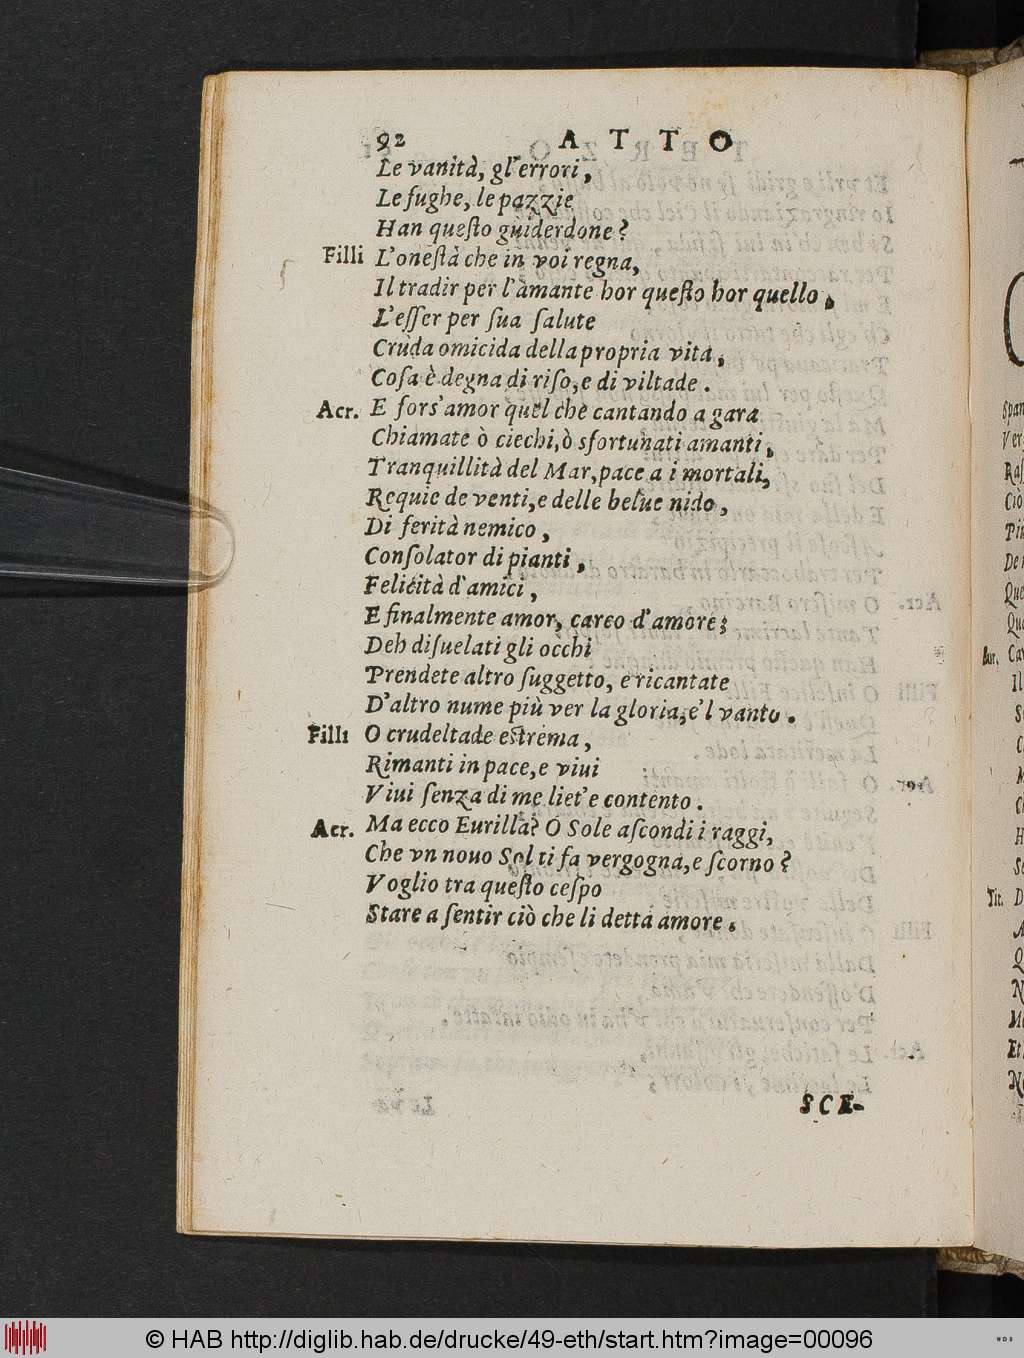 92 ATTO
Le vanità, gl'errori,
Le fughe, le pazzie
Han queſto guiderdone?
Filli L'oneſtà che in voi regna,
Il tradir per l'amante hor queſto hor quello,
L'eſſer per ſua ſalute
Cruda omicida della propria vita,
Coſa è degna di riſo, e di viltade.
Acr. E forſ'amor quel che cantando a gara
Chiamate ò ciechi, ò sfortunati amanti,
Tranquillità del Mar, pace a i mortali,
Requie de venti, e delle belue nido,
Di ferità nemico,
Conſolator di pianti,
Felicità d'amici,
E finalmente amor, carco d'amore;
Deh diſuelati gli occhi
Prendete altro ſuggetto, e ricantate
D'altro nume più ver la gloria, e'l vanto.
Filli O crudeltade estrema,
Rimanti in pace, e viui
Viui ſenza di me liet'e contento.
Acr. Ma ecco Eurilla? O Sole aſcondi i raggi,
Che vn nouo Sol ti fa vergogna, e ſcorno?
Voglio tra queſto ceſpo
Stare a ſentir ciò che li detta amore.
SCE-
Span
Ver
Raſ
Ciò
Pin
De
Que
Qua
Aur. Car
Il
Tit. D
Et
© HAB http://diglib.hab.de/drucke/49-eth/start.htm?image=00096